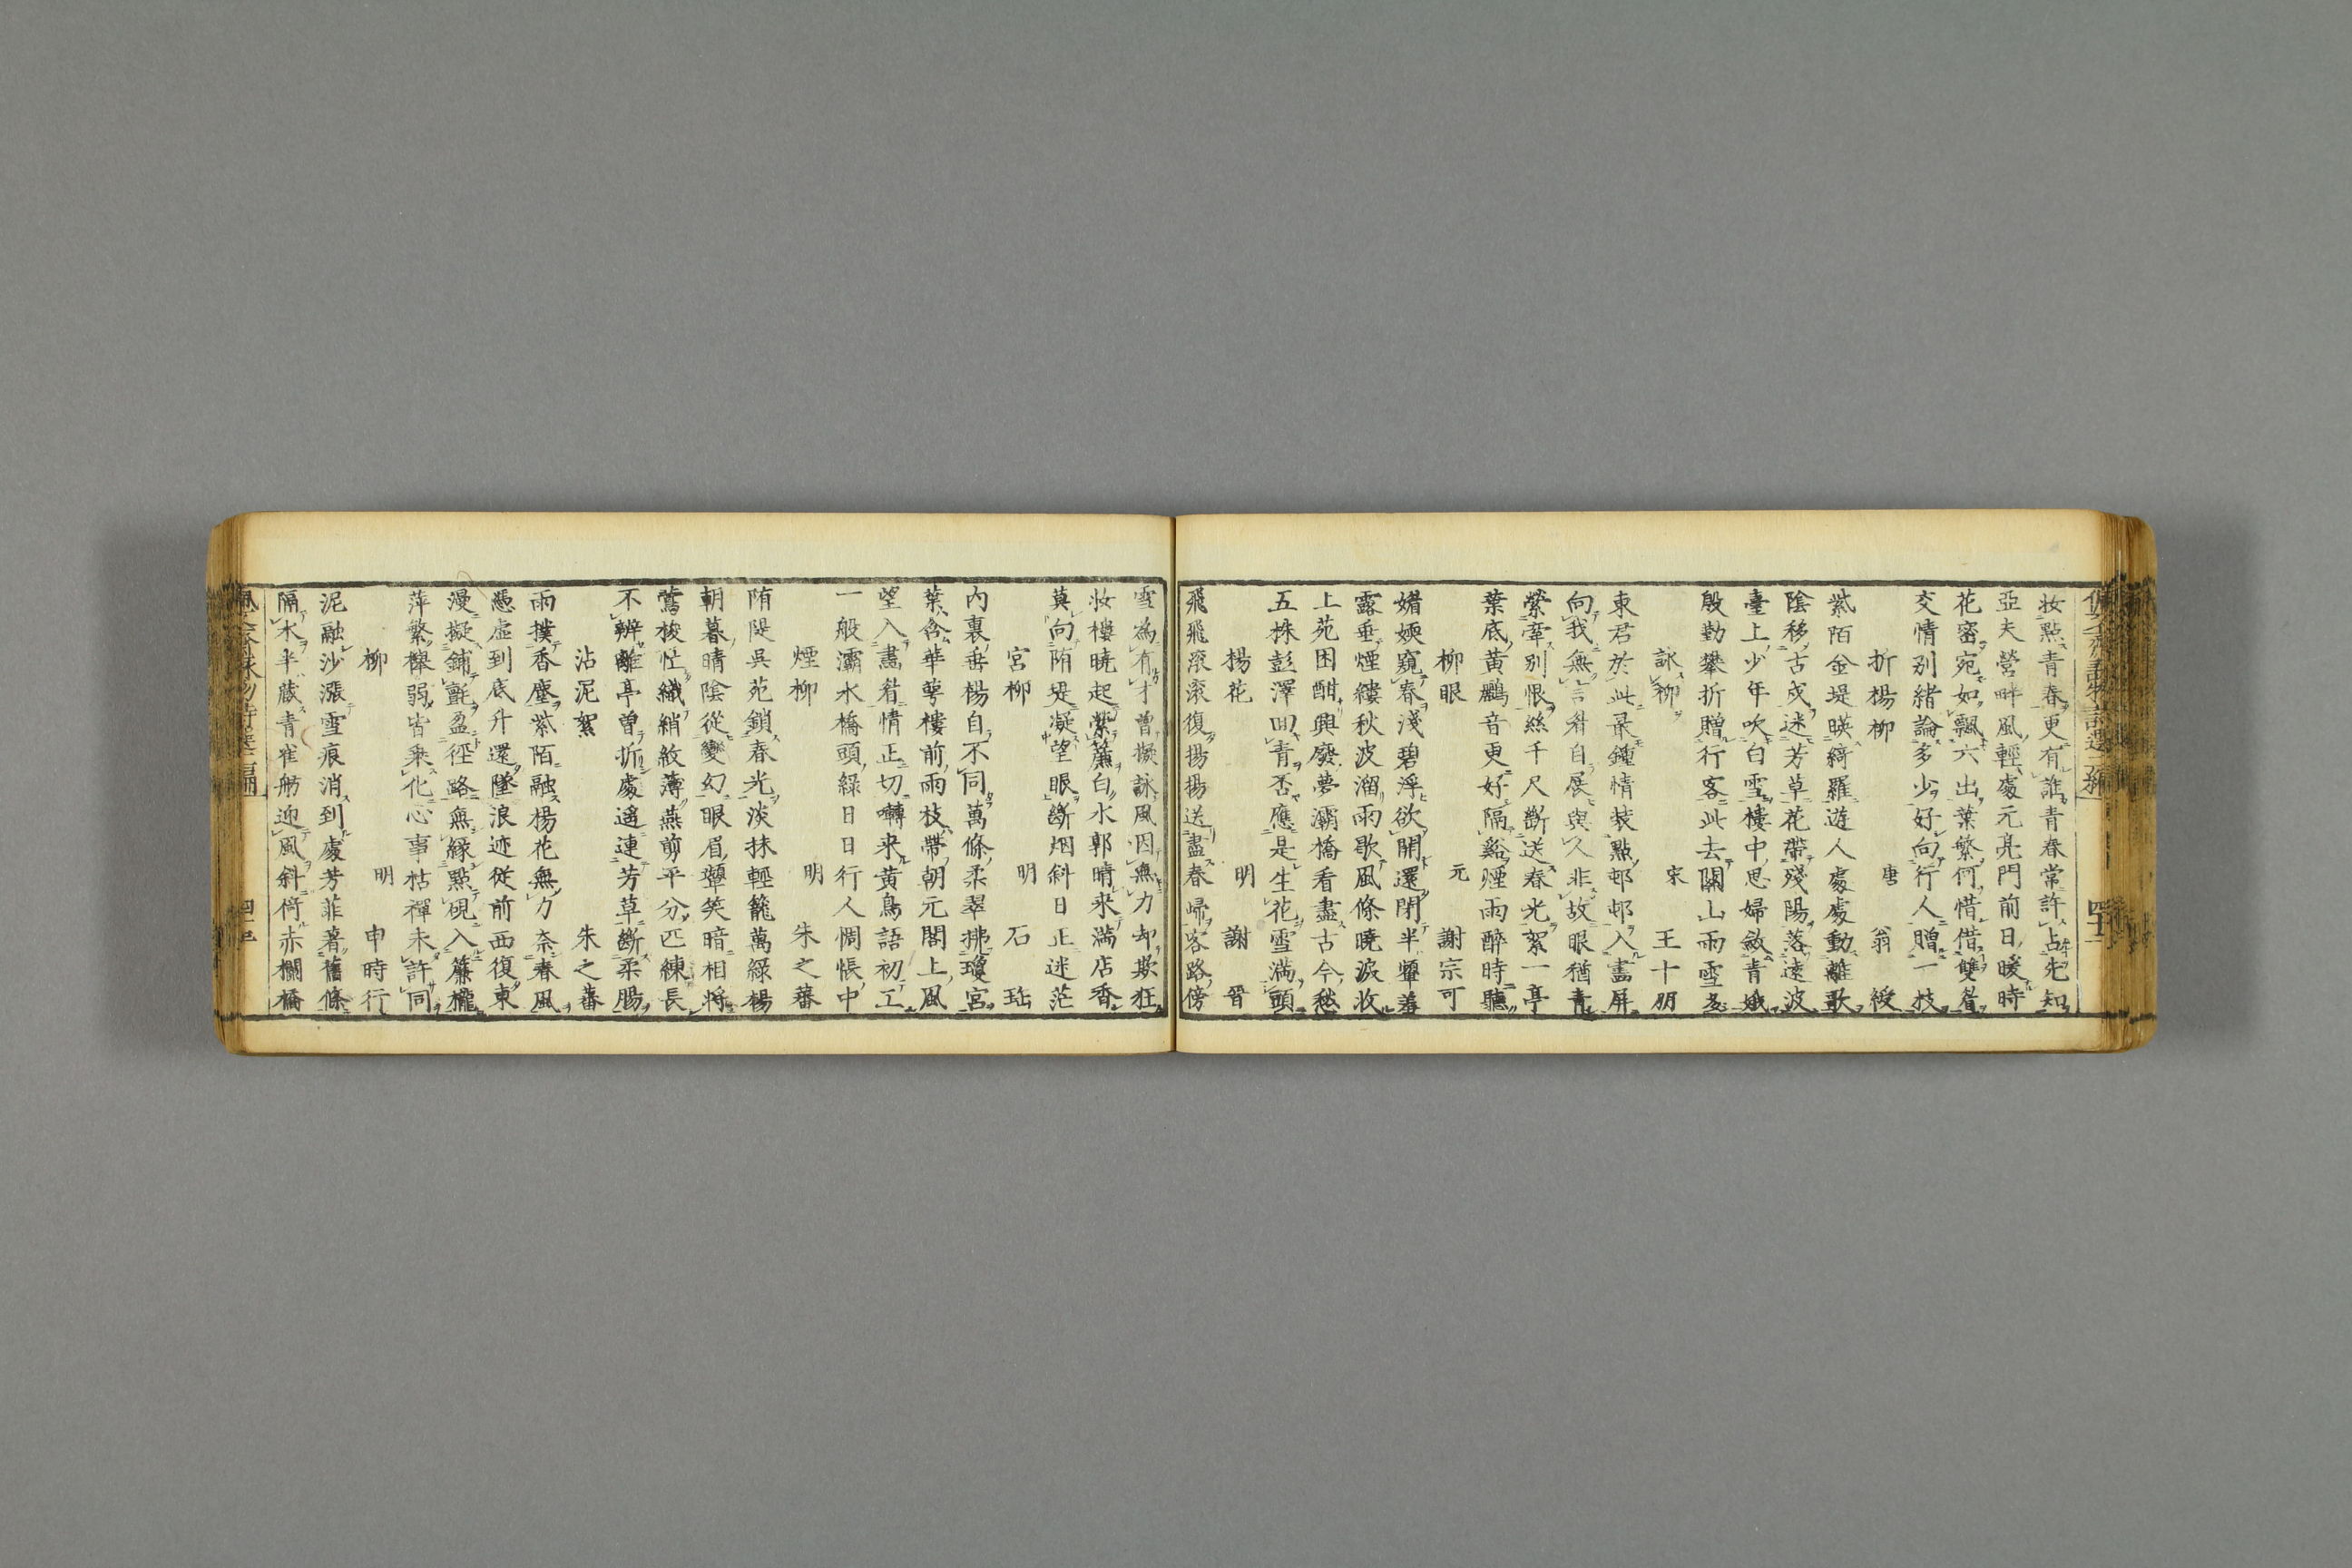 妝點青春更有誰青春常許占先知
亞夫營畔風輕處元亮門前日暖時
花密宛如飄六出葉繁何惜借雙眉
交情別緒論多少好向行人贈一枝
折楊柳 唐 翁綬
紫陌金堤暎綺羅遊人處處動離歌
陰移古戍迷芳草花帶殘陽落遠波
臺上少年吹白雪樓中思婦斂青娥
殷勤攀折贈行客此去關山雨雪多
詠柳 宋 王十朋
東君於此最鍾情裝點邨邨入畵屏
向我無言眉自展與人非故眼猶青
縈牽別恨絲千尺斷送春光絮一亭
葉底黃鸝音更好隔谿煙雨醉時聽
柳眼 元 謝宗可
媚㛐窺春淺碧浮欲開還閉半顰羞
露垂煙縷秋波溜雨歇風條曉淚收
上苑困酣興廢夢灞橋看盡古今愁
五株彭澤回青否應是生花雪滿頭
楊花 明 謝晉
飛飛滾滾復揚揚送盡春歸客路傍
雪為有才曾擬詠風因無力却欺狂
妝樓曉起縈簾白水郭晴來滿店香
莫向隋堤凝望眼斷烟斜日正迷茫
宮柳 明 石珤
內裏垂楊自不同萬條柔翠拂瓊宮
葉含華萼樓前雨枝帶朝元閣上風
望入畵眉情正切囀來黃鳥語初工
一般灞水橋頭綠日日行人惆悵中
煙柳 明 朱之蕃
隋隄吳苑鎖春光淡抹輕籠萬綠楊
朝暮晴陰從變幻眼眉顰笑暗相將
鶯梭忙織綃紋薄燕剪平分匹練長
不辨離亭曾折處遙連芳草斷柔腸
沾泥絮 朱之蕃
雨撲香塵紫陌融楊花無力奈春風
憑虛到底升還墜浪迹從前西復東
漫擬鋪氈盈徑路無緣點硯入簾櫳
萍繁櫸弱皆乘化心事枯禪未許同
柳 明 申時行
泥融沙漲雪痕消到處芳菲著舊條
隔水半藏青雀舫迎風斜倚赤欄橋